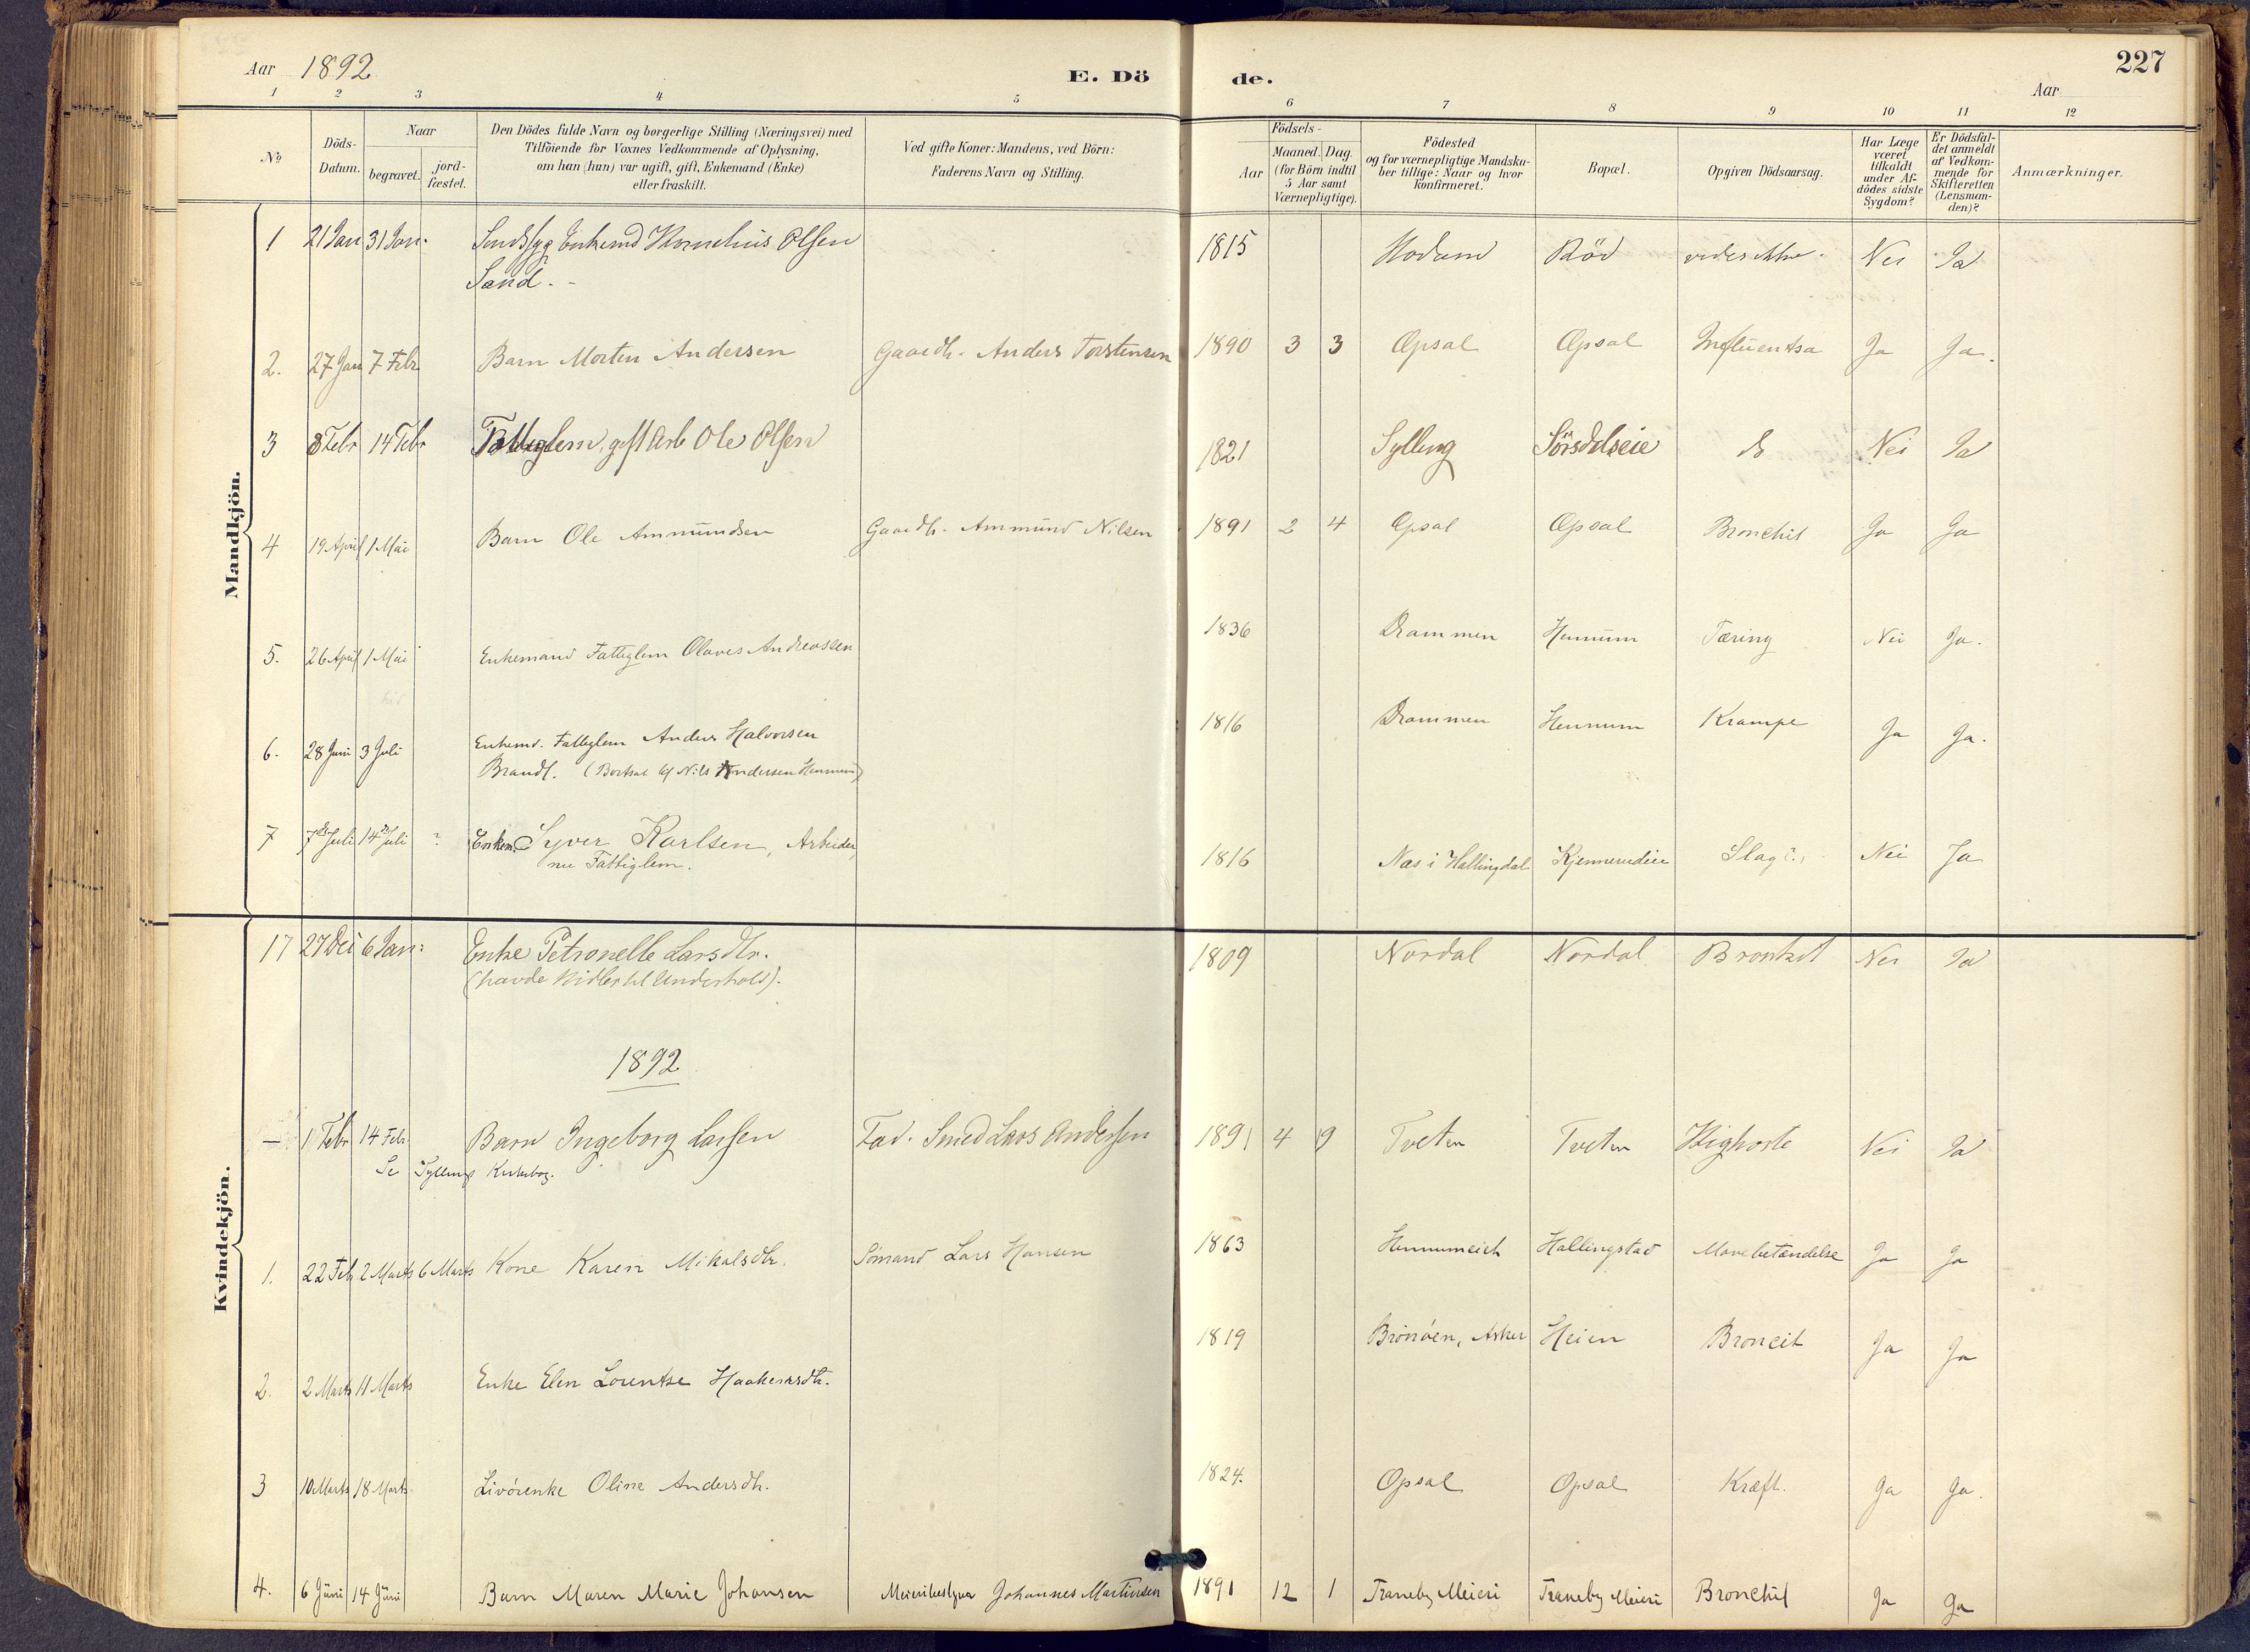 Aar 1892
E. Dö
de.
227
Aar
1 2 3 4 5 6 7 8 9 10 11 12
№
Döds-
Datum.
Naar
begravet.
jord-
fæstet.
Den Dödes fulde Navn og borgerlige Stilling (Næringsvei) med
Tilföiende for Voxnes Vedkommende af Oplysning,
om han (hun) var ugift, gift, Enkemand (Enke)
eller fraskilt.
Ved gifte Koner: Mandens, ved Börn:
Faderens Navn og Stilling.
Födsels-
Aar
Maaned. Dag.
(for Börn indtil
5 Aar samt
Værnepligtige).
Födested
og for værnepligtige Mandska-
ber tillige: Naar og hvor
konfirmeret.
Bopæl.
Opgiven Dödsaarsag.
Har Læge
været
tilkaldt
under Af-
dödes sidste
Sygdom?
Er Dödsfal-
det anmeldt
af Vedkom-
mende for
Skifteretten
(Lensman-
den)?
Anmærkninger.
Mandkjön.
1 21 Jan 31 Jan. Enkemd Kornelius Olsen 1815 Modum Röd vides ikke. Nei Ja
Sand.
2. 27 Jan 7 Febr Barn Morten Andersen Gaardb. Anders Torstensen 1890 3 3 Opsal Opsal Influentsa Ja Ja.
3 8 Febr 14 Febr Fattiglem, gift Arb Ole Olsen 1821 Sylling Sørsdalseie do Nei Ja
4 19 April 1 Mai Barn Ole Ammundsen Gaardb. Ammund Nilsen 1891 2 4 Opsal Opsal Bronchit Ja Ja
5. 26 April 1 Mai Enkemand Fattiglem Olaves Andreassen 1836 Drammen Hennum Tæring Nei Ja.
6. 28 Juni 3 Juli Enkemd. Fattiglem Anders Halvorsen 1816 Drammen Hennum Krampe Ja Ja.
Brandt. (Bortsat til Nils Andersen Hennum)
7 7de Juli 14de Juli ? Enkem. Syver Karlsen, Arbeider, 1816 Næs i Hallingdal Kjennerudeie Slag?, Nei Ja
nu Fattiglem.
Kvindekjön.
17 27 Dec 6 Jan: Enke Petronelle Larsdtr. 1809 Nordal Nordal Bronkit Nei Ja
(havde Midler til Underhold).
1892
— 1 Febr 14 Febr Barn Ingeborg Larsen Fad. Smed Lars Andersen 1891 4 9 Tveten Tveten Kighoste Nei Ja
Se Syllings Kirkebog.
1. 22 Feb 2 Marts 6 Marts Kone Karen Mikalsdtr. Sömand Lars Hansen 1863 Hennumeich Hallingstad Mavebetændelse Ja Ja
2. 2 Marts 11 Marts Enke Elen Lorentse Haakensdtr. 1819 Brönöen, Asker Heien Broncit Ja Ja
3 10 Marts 18 Marts Livörenke Oline Andersdtr. 1824. Opsal Opsal Kræft. Ja Ja.
4. 6 Juni 14 Juni Barn Maren Marie Johansen Meieribestyrer Johannes Martinsen 1891 12 1 Traneby Meieri Traneby Meieri Bronchit Ja Ja